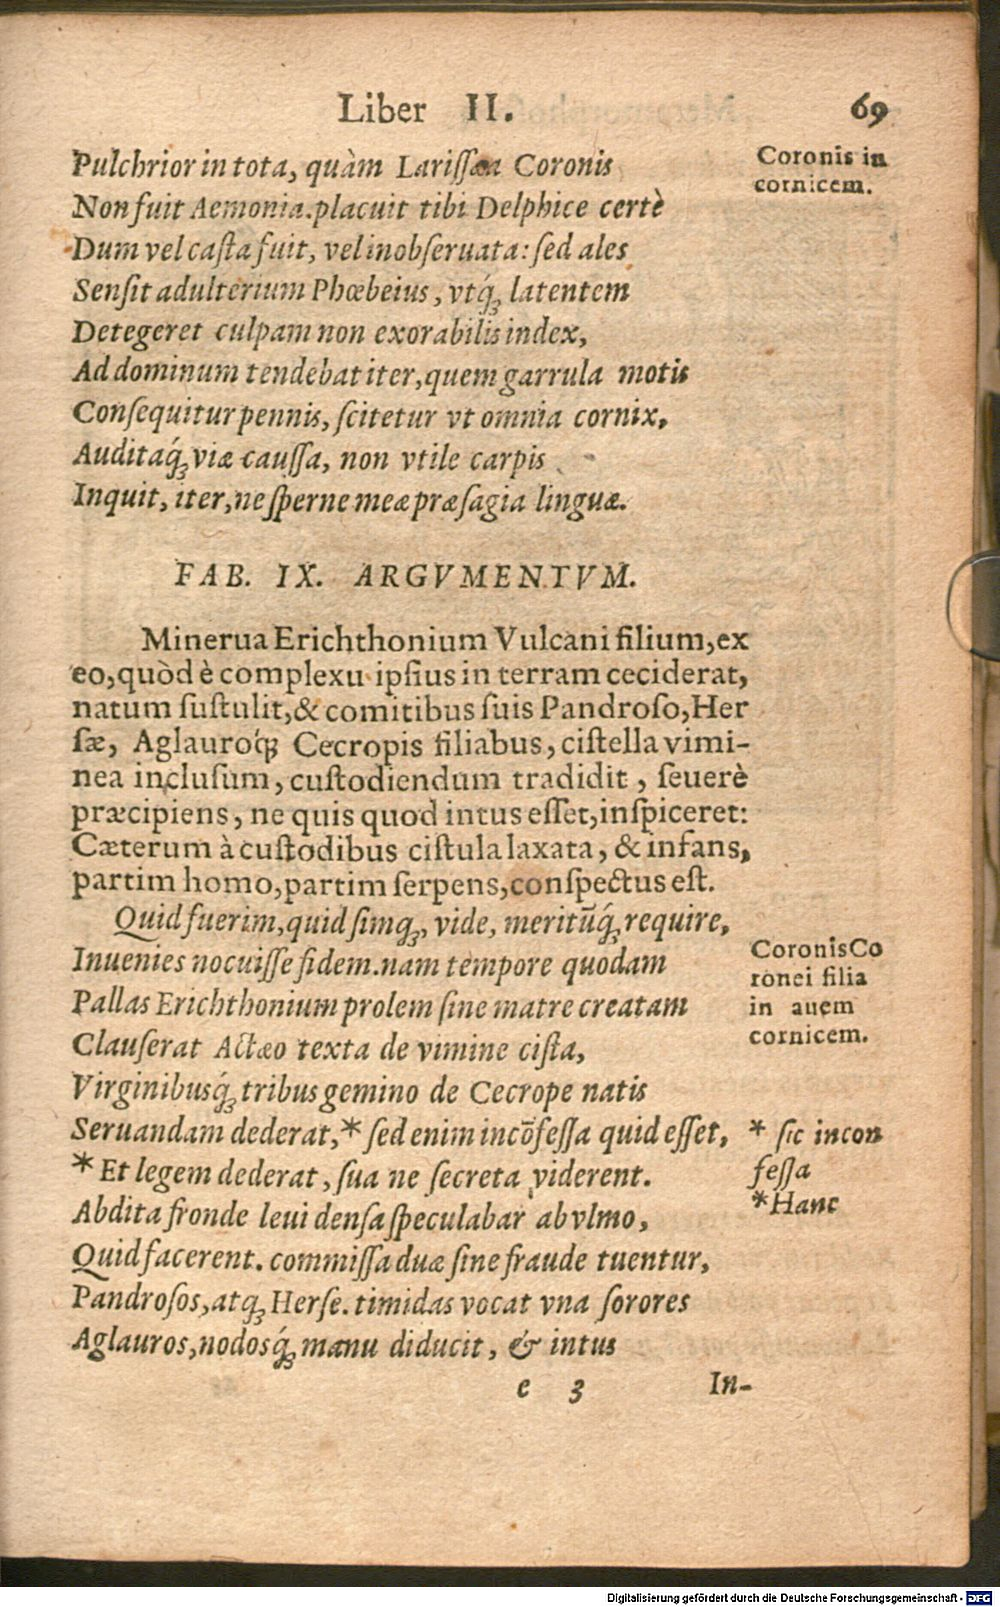 Liber II. 69
Pulchrior in tota, quàm Larissæa Coronis
Coronis in
cornicem.
Non fuit Aemonia. placuit tibi Delphice certè
Dum vel casta fuit, vel inobseruata: sed ales
Sensit adulterium Phœbeius, vtq́; latentem
Detegeret culpam non exorabilis index,
Ad dominum tendebat iter, quem garrula motis
Consequitur pennis, scitetur vt omnia cornix,
Auditaq́; viæ caussa, non vtile carpis
Inquit, iter, ne sperne meæ præsagia linguæ.
FAB. IX. ARGVMENTVM.
Minerua Erichthonium Vulcani filium, ex
eo, quòd è complexu ipsius in terram ceciderat,
natum sustulit, & comitibus suis Pandroso, Her
sæ, Aglauroq́; Cecropis filiabus, cistella vimi-
nea inclusum, custodiendum tradidit, seuerè
præcipiens, ne quis quod intus esset, inspiceret:
Cæterum à custodibus cistula laxata, & infans,
partim homo, partim serpens, conspectus est.
Quid fuerim, quid simq́;, vide, meritūq́; require,
Inuenies nocuisse fidem. nam tempore quodam
Coronis Co
ronei filia
in auem
cornicem.
Pallas Erichthonium prolem sine matre creatam
Clauserat Actæo texta de vimine cista,
Virginibusq́; tribus gemino de Cecrope natis
Seruandam dederat, * sed enim incōfessa quid esset,
* sic incon
fessa
* Et legem dederat, sua ne secreta viderent.
* Hanc
Abdita fronde leui densa speculabar ab vlmo,
Quid facerent. commissa duæ sine fraude tuentur,
Pandrosos, atq; Herse. timidas vocat vna sorores
Aglauros, nodosq́; manu diducit, & intus
e 3 In-
Digitalisierung gefördert durch die Deutsche Forschungsgemeinschaft - DFG